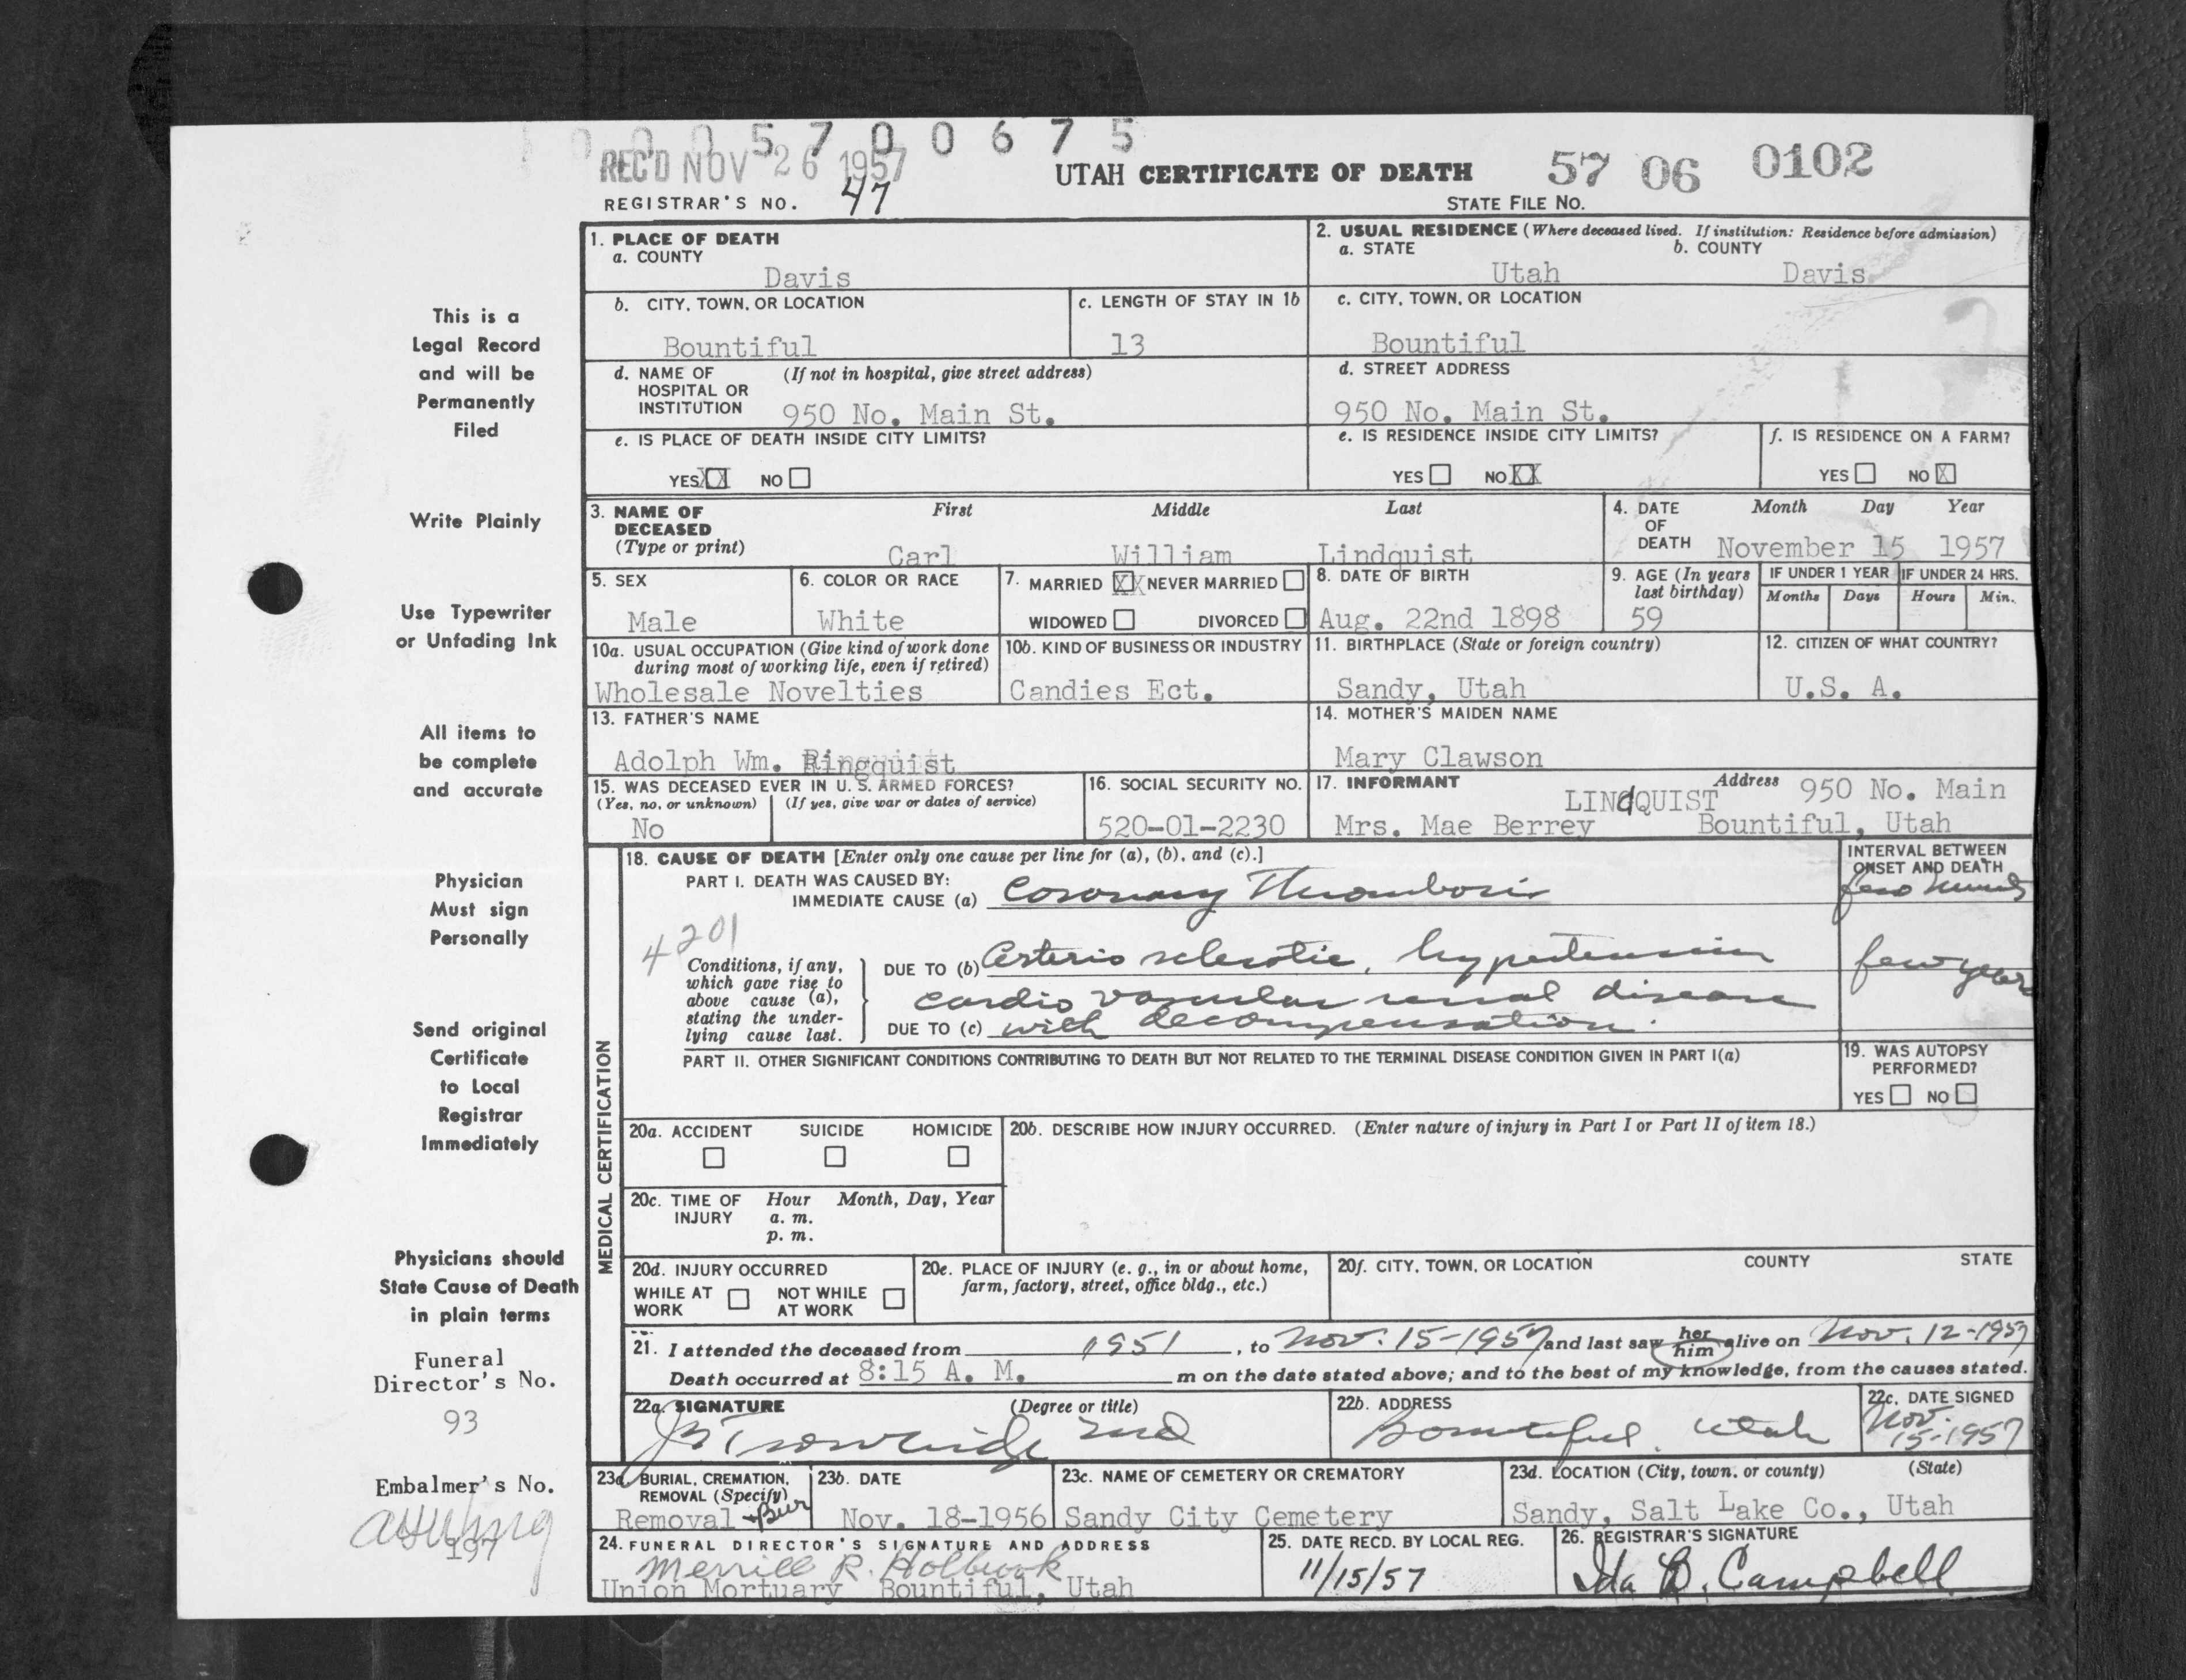 0 0 0 5 7 0 0 6 7 5
REC'D NOV 26 1957
UTAH CERTIFICATE OF DEATH 57 06 0102
REGISTRAR'S NO. 47 STATE FILE NO.
This is a
Legal Record
and will be
Permanently
Filed
Write Plainly
Use Typewriter
or Unfading Ink
All items to
be complete
and accurate
Physician
Must sign
Personally
Send original
Certificate
to Local
Registrar
Immediately
Physicians should
State Cause of Death
in plain terms
Funeral
Director's No.
93
Embalmer's No.
197
1. PLACE OF DEATH
a. COUNTY
Davis
2. USUAL RESIDENCE (Where deceased lived. If institution: Residence before admission)
a. STATE b. COUNTY
Utah Davis
b. CITY, TOWN, OR LOCATION
Bountiful
c. LENGTH OF STAY IN 1b
13
c. CITY, TOWN, OR LOCATION
Bountiful
d. NAME OF (If not in hospital, give street address)
HOSPITAL OR
INSTITUTION 950 No. Main St.
d. STREET ADDRESS
950 No. Main St.
e. IS PLACE OF DEATH INSIDE CITY LIMITS?
YES XX NO
e. IS RESIDENCE INSIDE CITY LIMITS?
YES NO XX
f. IS RESIDENCE ON A FARM?
YES NO X
3. NAME OF DECEASED (Type or print) First Middle Last
Carl William Lindquist
4. DATE OF DEATH Month Day Year
November 15 1957
5. SEX
Male
6. COLOR OR RACE
White
7. MARRIED XX NEVER MARRIED
WIDOWED DIVORCED
8. DATE OF BIRTH
Aug. 22nd 1898
9. AGE (In years last birthday)
59
IF UNDER 1 YEAR IF UNDER 24 HRS.
Months Days Hours Min.
10a. USUAL OCCUPATION (Give kind of work done
during most of working life, even if retired)
Wholesale Novelties
10b. KIND OF BUSINESS OR INDUSTRY
Candies Ect.
11. BIRTHPLACE (State or foreign country)
Sandy, Utah
12. CITIZEN OF WHAT COUNTRY?
U.S. A.
13. FATHER'S NAME
Adolph Wm. Ringquist
14. MOTHER'S MAIDEN NAME
Mary Clawson
15. WAS DECEASED EVER IN U. S. ARMED FORCES?
(Yes, no, or unknown) (If yes, give war or dates of service)
No
16. SOCIAL SECURITY NO.
520-01-2230
17. INFORMANT Address 950 No. Main
LINdQUIST
Mrs. Mae Berrey Bountiful, Utah
MEDICAL CERTIFICATION
18. CAUSE OF DEATH [Enter only one cause per line for (a), (b), and (c).]
INTERVAL BETWEEN
ONSET AND DEATH
PART I. DEATH WAS CAUSED BY:
IMMEDIATE CAUSE (a) Coronary Thrombosis few
4201
Conditions, if any,
which gave rise to
above cause (a),
stating the under-
lying cause last.
DUE TO (b) Arterio sclerotic, hypertension few years
cardio vascular renal disease
DUE TO (c) with decompensation.
PART II. OTHER SIGNIFICANT CONDITIONS CONTRIBUTING TO DEATH BUT NOT RELATED TO THE TERMINAL DISEASE CONDITION GIVEN IN PART I(a)
19. WAS AUTOPSY
PERFORMED?
YES NO
20a. ACCIDENT SUICIDE HOMICIDE
20b. DESCRIBE HOW INJURY OCCURRED. (Enter nature of injury in Part I or Part II of item 18.)
20c. TIME OF Hour Month, Day, Year
INJURY a. m.
p. m.
20d. INJURY OCCURRED
WHILE AT WORK NOT WHILE AT WORK
20e. PLACE OF INJURY (e. g., in or about home,
farm, factory, street, office bldg., etc.)
20f. CITY, TOWN, OR LOCATION COUNTY STATE
21. I attended the deceased from 1951, to Nov. 15-1957 and last saw her him alive on Nov. 12-1957
Death occurred at 8:15 A. M. m on the date stated above; and to the best of my knowledge, from the causes stated.
22a. SIGNATURE (Degree or title)
J Trowbridge MD
22b. ADDRESS
Bountiful, Utah
22c. DATE SIGNED
Nov.
15-1957
23a. BURIAL, CREMATION,
REMOVAL (Specify)
Removal + Bur
23b. DATE
Nov. 18-1956
23c. NAME OF CEMETERY OR CREMATORY
Sandy City Cemetery
23d. LOCATION (City, town, or county) (State)
Sandy, Salt Lake Co., Utah
24. FUNERAL DIRECTOR'S SIGNATURE AND ADDRESS
Merrill R. Holbrook
Union Mortuary Bountiful, Utah
25. DATE RECD. BY LOCAL REG.
11/15/57
26. REGISTRAR'S SIGNATURE
Ida B. Campbell